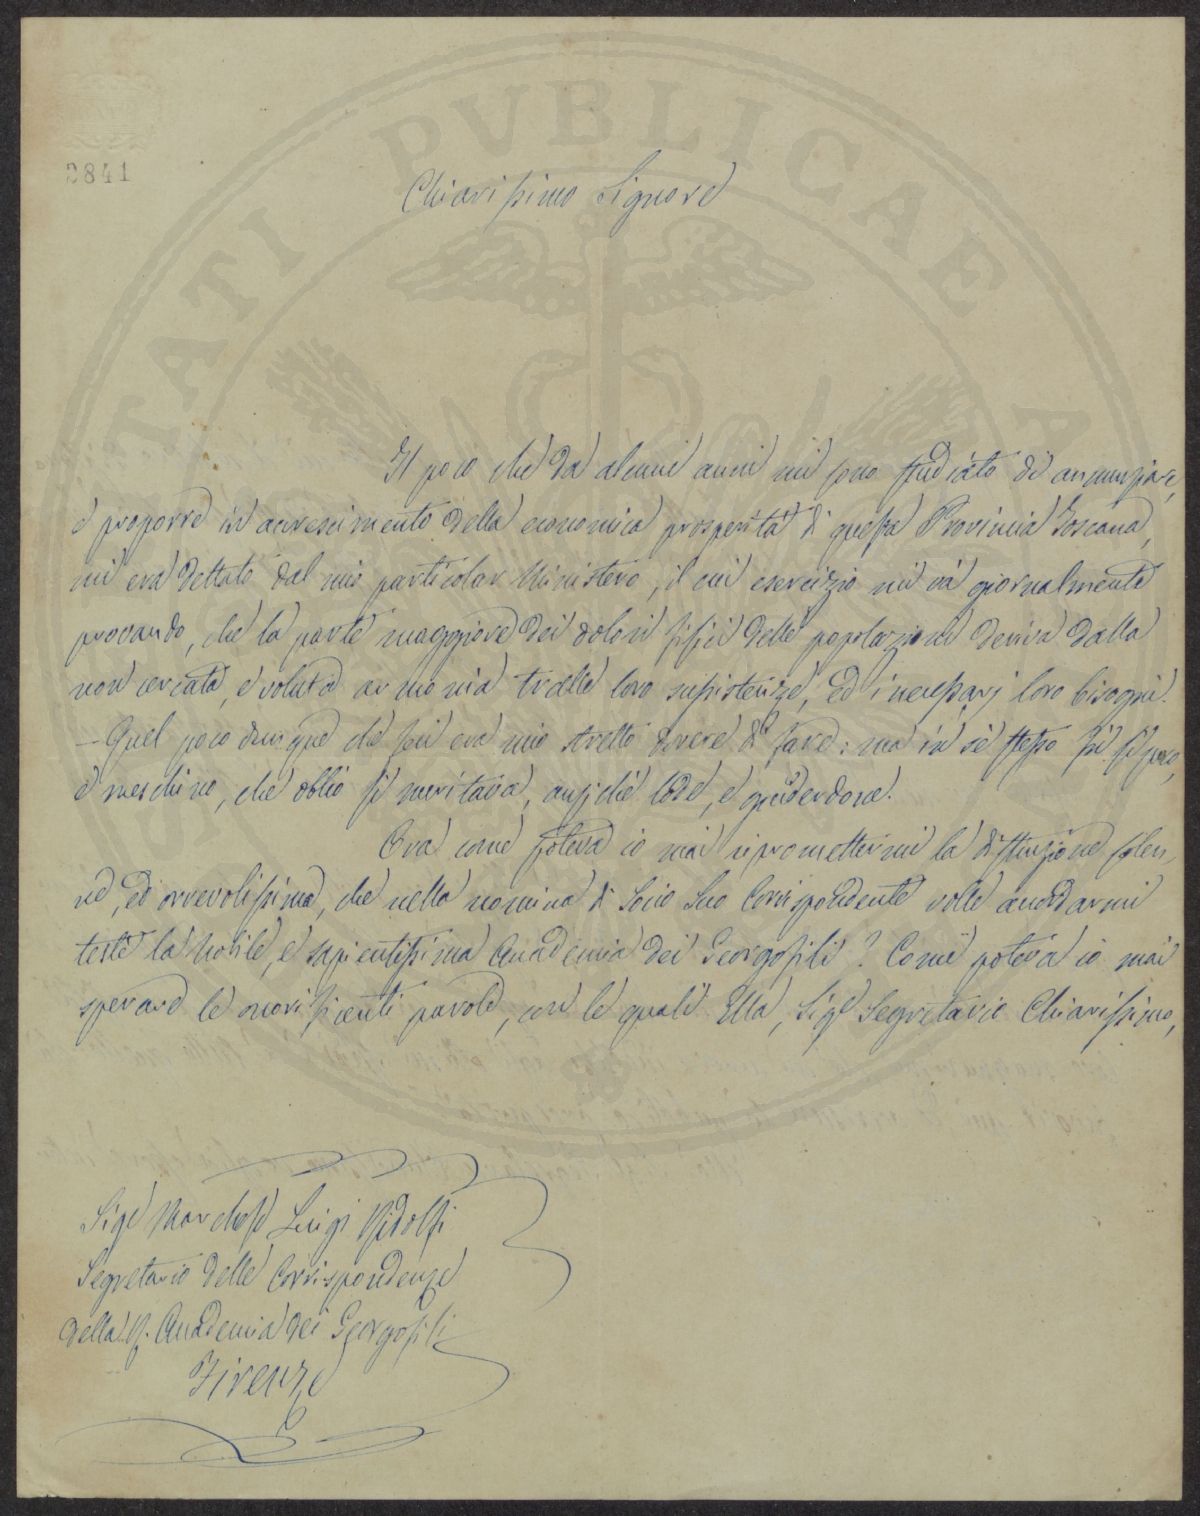 PROSPERITATI PVBLICAE AVGENDAE
2841
Chiarissimo Signore
Il poco che da alcuni anni mi sono studiato di annunziare,
e proporre in accrescimento della economica prosperità di questa Provincia Toscana,
mi era dettato dal mio particolar Ministero, il cui esercizio mi và giornalmente
provando, che la parte maggiore dei dolori fisici delle popolazioni deriva dalla
non cercata, e voluta armonia tralle loro sussistenze, ed i necessarj loro bisogni.
– Quel poco dunque che feci era mio stretto dovere di fare: ma in sè stesso fù sì poco,
e meschino, che oblio si meritava, anziché lode, e guiderdone.
Ora come poteva io mai ripromettermi la distinzione solen-
ne, ed orrevolissima, che nella nomina di Socio Suo Corrispondente volle accordarmi
testè la Nobile, e sapientissima Accademia dei Georgofili? Come poteva io mai
sperare le onorificenti parole, con le quali Ella, Sigr Segretario Chiarissimo,
Sigr Marchese Luigi Ridolfi
Segretario delle Corrispondenze
della R. Accademia dei Georgofili
Firenze